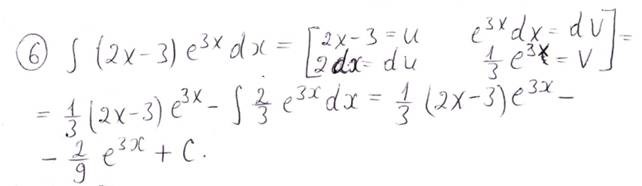 ⑥ ∫ (2x-3) e^{3x} dx = [2x-3 = u   e^{3x}dx = dV
2dx = du   1/3 e^{3x} = V] =
= 1/3 (2x-3) e^{3x} - ∫ 2/3 e^{3x} dx = 1/3 (2x-3) e^{3x} -
- 2/9 e^{3x} + C.